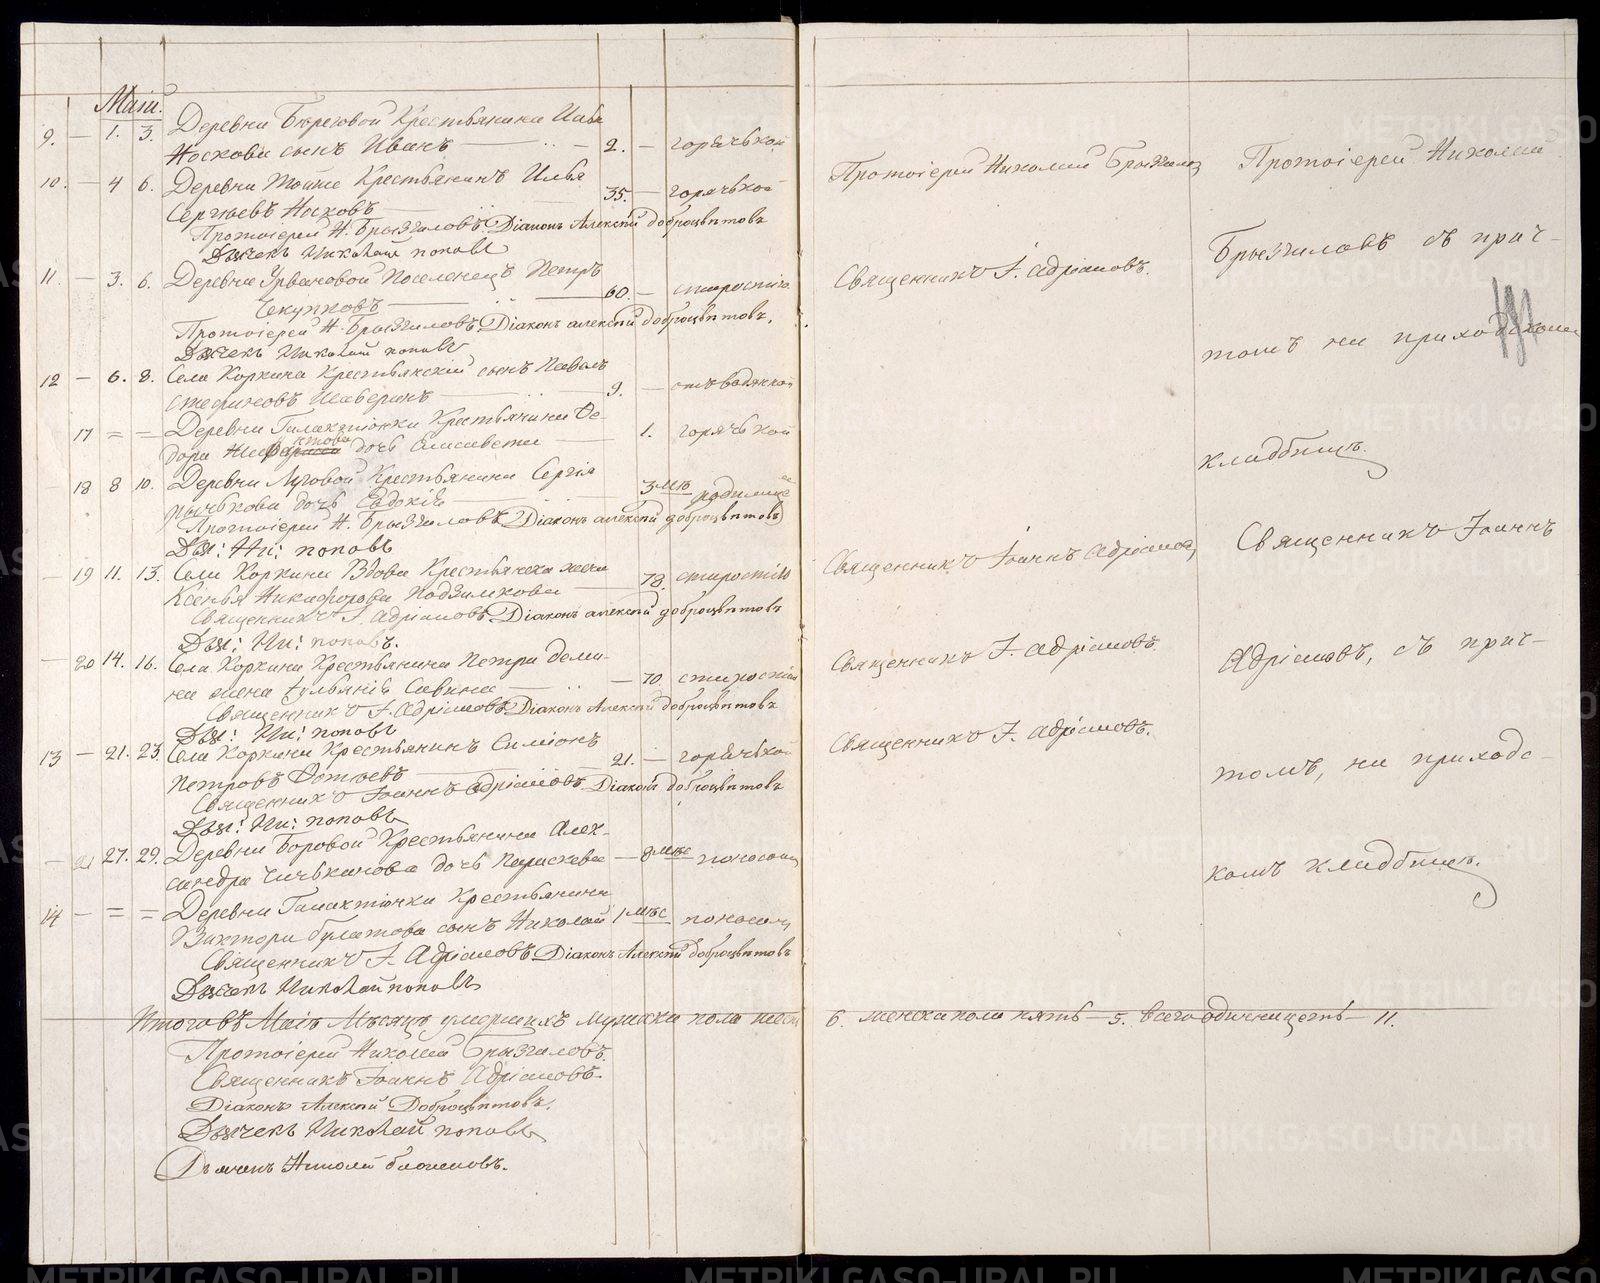 Маій.
9. — 1. 3. Деревни Береговой Крестьянина Ильи
Носкова сынъ Иванъ — 2. — горячькой
10. — 4 6. Деревни тойже Крестьянинъ Илья
Сергѣевъ Носковъ — 35. — горячькой
Протоіерей Н. Брызгаловъ Діаконъ Алексій Доброцвѣтовъ
Дьячекъ Николай поповъ
11. — 3. 6. Деревни Поселенецъ Петръ
60. — старости
Протоіерей Н. Брызгаловъ Діаконъ алексій доброцвѣтовъ,
Дьячекъ Николай поповъ
12 — 6. 8. Села Коркина Крестьянскій сынъ Павелъ
Стефановъ — 9. — отъ водянной
17 = = Деревни Галактіонки Крестьянина Ѳе-
дора дочь Елисавета — 1. горячькой
18 8 10. Деревни Луговой Крестьянина Сергія
дочь Евдокія — 3 мѣс родимца
Протоіерей Н. Брызгаловъ Діаконъ алексій доброцвѣтовъ
Дья: Ни: поповъ
19 11. 13. Села Коркина Вдова Крестьянска жена
Ксенья Никифорова — 78. старости
Священникъ І. Адріановъ Діаконъ алексій доброцвѣтовъ
Дья: Ни: поповъ.
20 14. 16. Села Коркина Крестьянина Петра
жена Ульянія Савина — 70. старости
Священникъ І. Адріановъ Діаконъ Алексій доброцвѣтовъ
Дья: Ни: поповъ
13 — 21. 23. Села Коркина Крестьянинъ Симіонъ
Петровъ — 21. — горячькой
Священникъ Іоаннъ Адріановъ. Діаконъ доброцвѣтовъ
Дья: Ни: поповъ
21 27. 29. Деревни Боровой Крестьянина Алек-
сандра дочь Параскева — 8 мѣс поносомъ
14 — = = Деревни Галактіонки Крестьянина
Виктора Булатова сынъ Николай 1 мѣс поносомъ
Священникъ І. Адріановъ Діаконъ Алексій доброцвѣтовъ
Дьячекъ Николай поповъ
Итого въ Маіѣ Мѣсяцѣ умершихъ мужска пола шесть
6. женска пола пять — 5. всего одиннцеть — 11.
Протоіерей Николай Брызгаловъ.
Священникъ Іоаннъ Адріановъ.
Діаконъ Алексій Доброцвѣтовъ.
Дьячекъ Николай поповъ
Протоіерей Николай Брызгаловъ
Священникъ І. Адріановъ.
Священникъ Іоаннъ Адріановъ,
Священникъ І. Адріановъ.
Священникъ І. Адріановъ.
Протоіерей Николай
Брызгаловъ съ прич-
томъ на приходскомъ
кладбищѣ.
Священникъ Іоаннъ
Адріановъ, съ прич-
томъ, на приходс-
комъ кладбищѣ.
METRIKI.GASO-URAL.RU